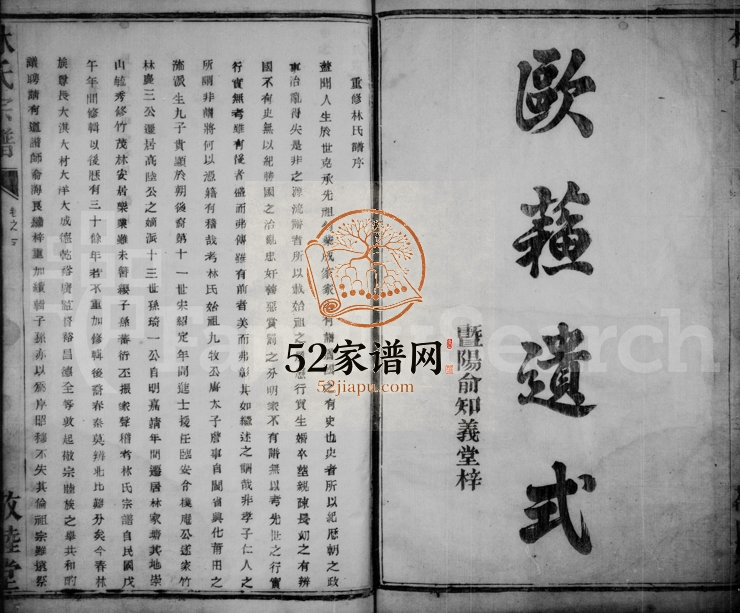 歐蘓遺式
暨陽俞知義堂梓
重修林氏譜序
蓋聞人生於世克承先祖 有史也史者所以紀歷朝之政
事治亂得失是非之 者所以載始祖之 行實生婚卒塟親疎長幼之有辨
國不有史無以紀 國之治亂忠奸 賞罰之分明家不有譜無以考先世之行實
行實無考雖有後者盛而弗傳雖有前者美而弗彰其如繼述之謂哉非孝子仁人之
所謂非譜將何以憑藉有稽哉考林氏始祖九牧公 太子詹事自閩省興化莆田之
派生九子貴顯於朝後裔第十一世宋紹定年間進士授任臨安 公遂家竹
林 三公遷居高陸公之嫡派十三世孫琦一公自明嘉靖年間遷居林家塘其地崇
山毓秀修竹茂林安居樂業 未 子孫蕃衍丕振家聲稽考林氏宗譜自民國戊
午年間修輯以後歷有三十餘年若不重加修輯後裔春秦莫辨北比難分矣今春林
族尊長大淇大材大洋大成德乾裕 裕昌德全等敦起敬宗睦族之舉共和酌
議聘請有道譜師俞海良 梓重加續輯子孫亦以 序昭穆不失其倫祖宗雖遠祭
林氏宗譜
卷之首
敦睦堂
52家谱网
52jiapu.com
FamilySearch